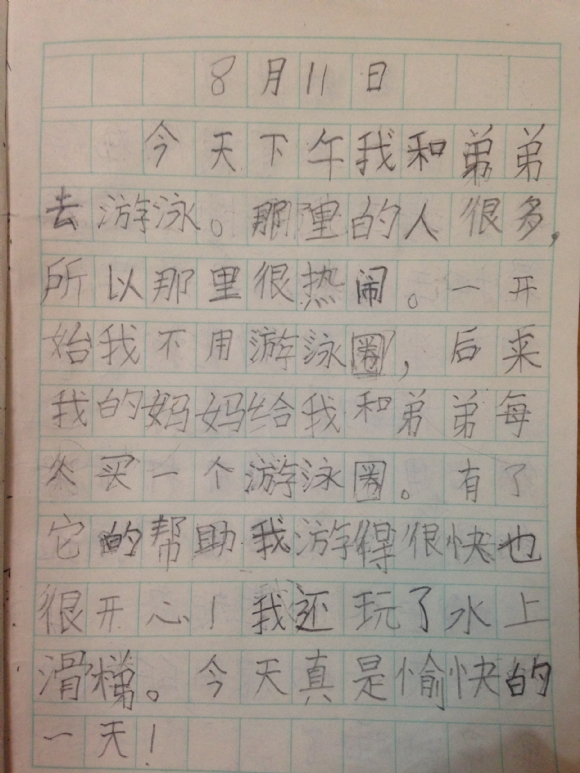 8月11日
今天下午我和弟弟
去游泳。那里的人很多,
所以那里很热闹。一开
始我不用游泳圈,后来
我的妈妈给我和弟弟每
人买一个游泳圈。有了
它的帮助我游得很快也
很开心!我还玩了水上
滑梯。今天真是愉快的
一天!